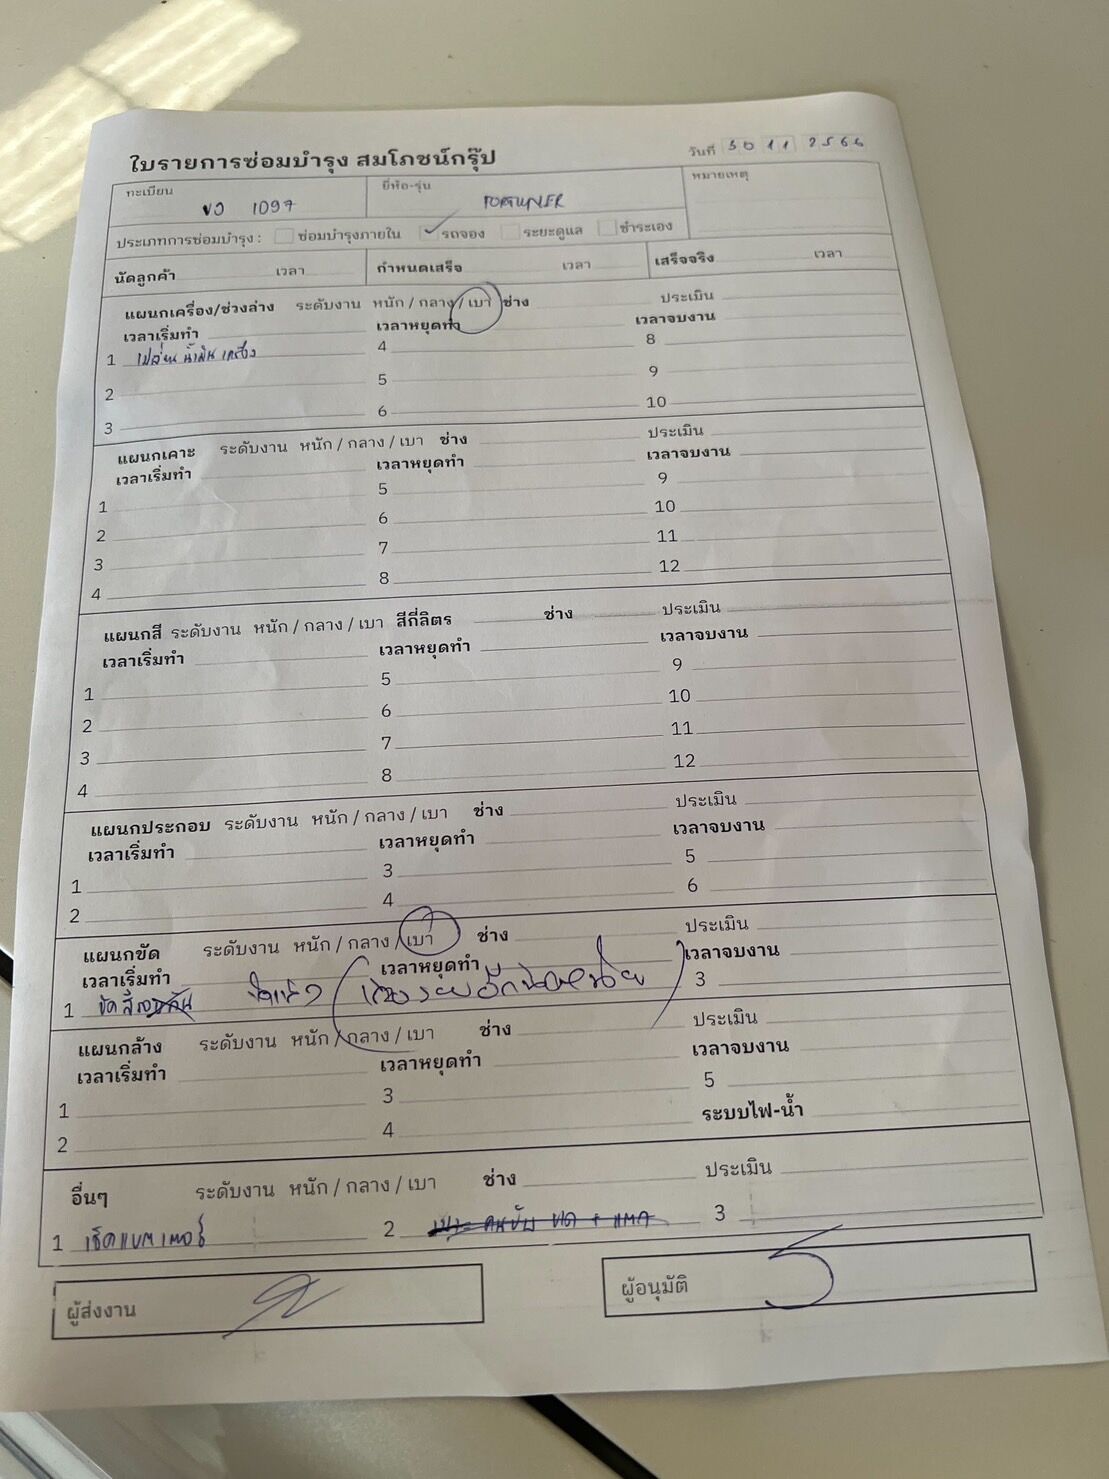 ใบรายการซ่อมบำรุง สมโภชน์กรุ๊ป
วันที่ 30 11 2566
ทะเบียน ขว 1097 ยี่ห้อ-รุ่น FORTUNER หมายเหตุ
ประเภทการซ่อมบำรุง : ซ่อมบำรุงภายใน รถจอง ระยะดูแล ชำระเอง
นัดลูกค้า เวลา กำหนดเสร็จ เวลา เสร็จจริง เวลา
แผนกเครื่อง/ช่วงล่าง ระดับงาน หนัก / กลาง / เบา ช่าง ประเมิน
เวลาเริ่มทำ เวลาหยุดทำ เวลาจบงาน
1 เปลี่ยนน้ำมันเครื่อง 4 8
2 5 9
3 6 10
แผนกเคาะ ระดับงาน หนัก / กลาง / เบา ช่าง ประเมิน
เวลาเริ่มทำ เวลาหยุดทำ เวลาจบงาน
1 5 9
2 6 10
3 7 11
4 8 12
แผนกสี ระดับงาน หนัก / กลาง / เบา สีกี่ลิตร ช่าง ประเมิน
เวลาเริ่มทำ เวลาหยุดทำ เวลาจบงาน
1 5 9
2 6 10
3 7 11
4 8 12
แผนกประกอบ ระดับงาน หนัก / กลาง / เบา ช่าง ประเมิน
เวลาเริ่มทำ เวลาหยุดทำ เวลาจบงาน
1 3 5
2 4 6
แผนกขัด ระดับงาน หนัก / กลาง / เบา ช่าง ประเมิน
เวลาเริ่มทำ เวลาหยุดทำ เวลาจบงาน
1 ขัดสี 3
แผนกล้าง ระดับงาน หนัก / กลาง / เบา ช่าง ประเมิน
เวลาเริ่มทำ เวลาหยุดทำ เวลาจบงาน
1 3 5
2 4 ระบบไฟ-น้ำ
อื่นๆ ระดับงาน หนัก / กลาง / เบา ช่าง ประเมิน
1 เช็คแบตเตอรี่ 2 3
ผู้ส่งงาน ผู้อนุมัติ